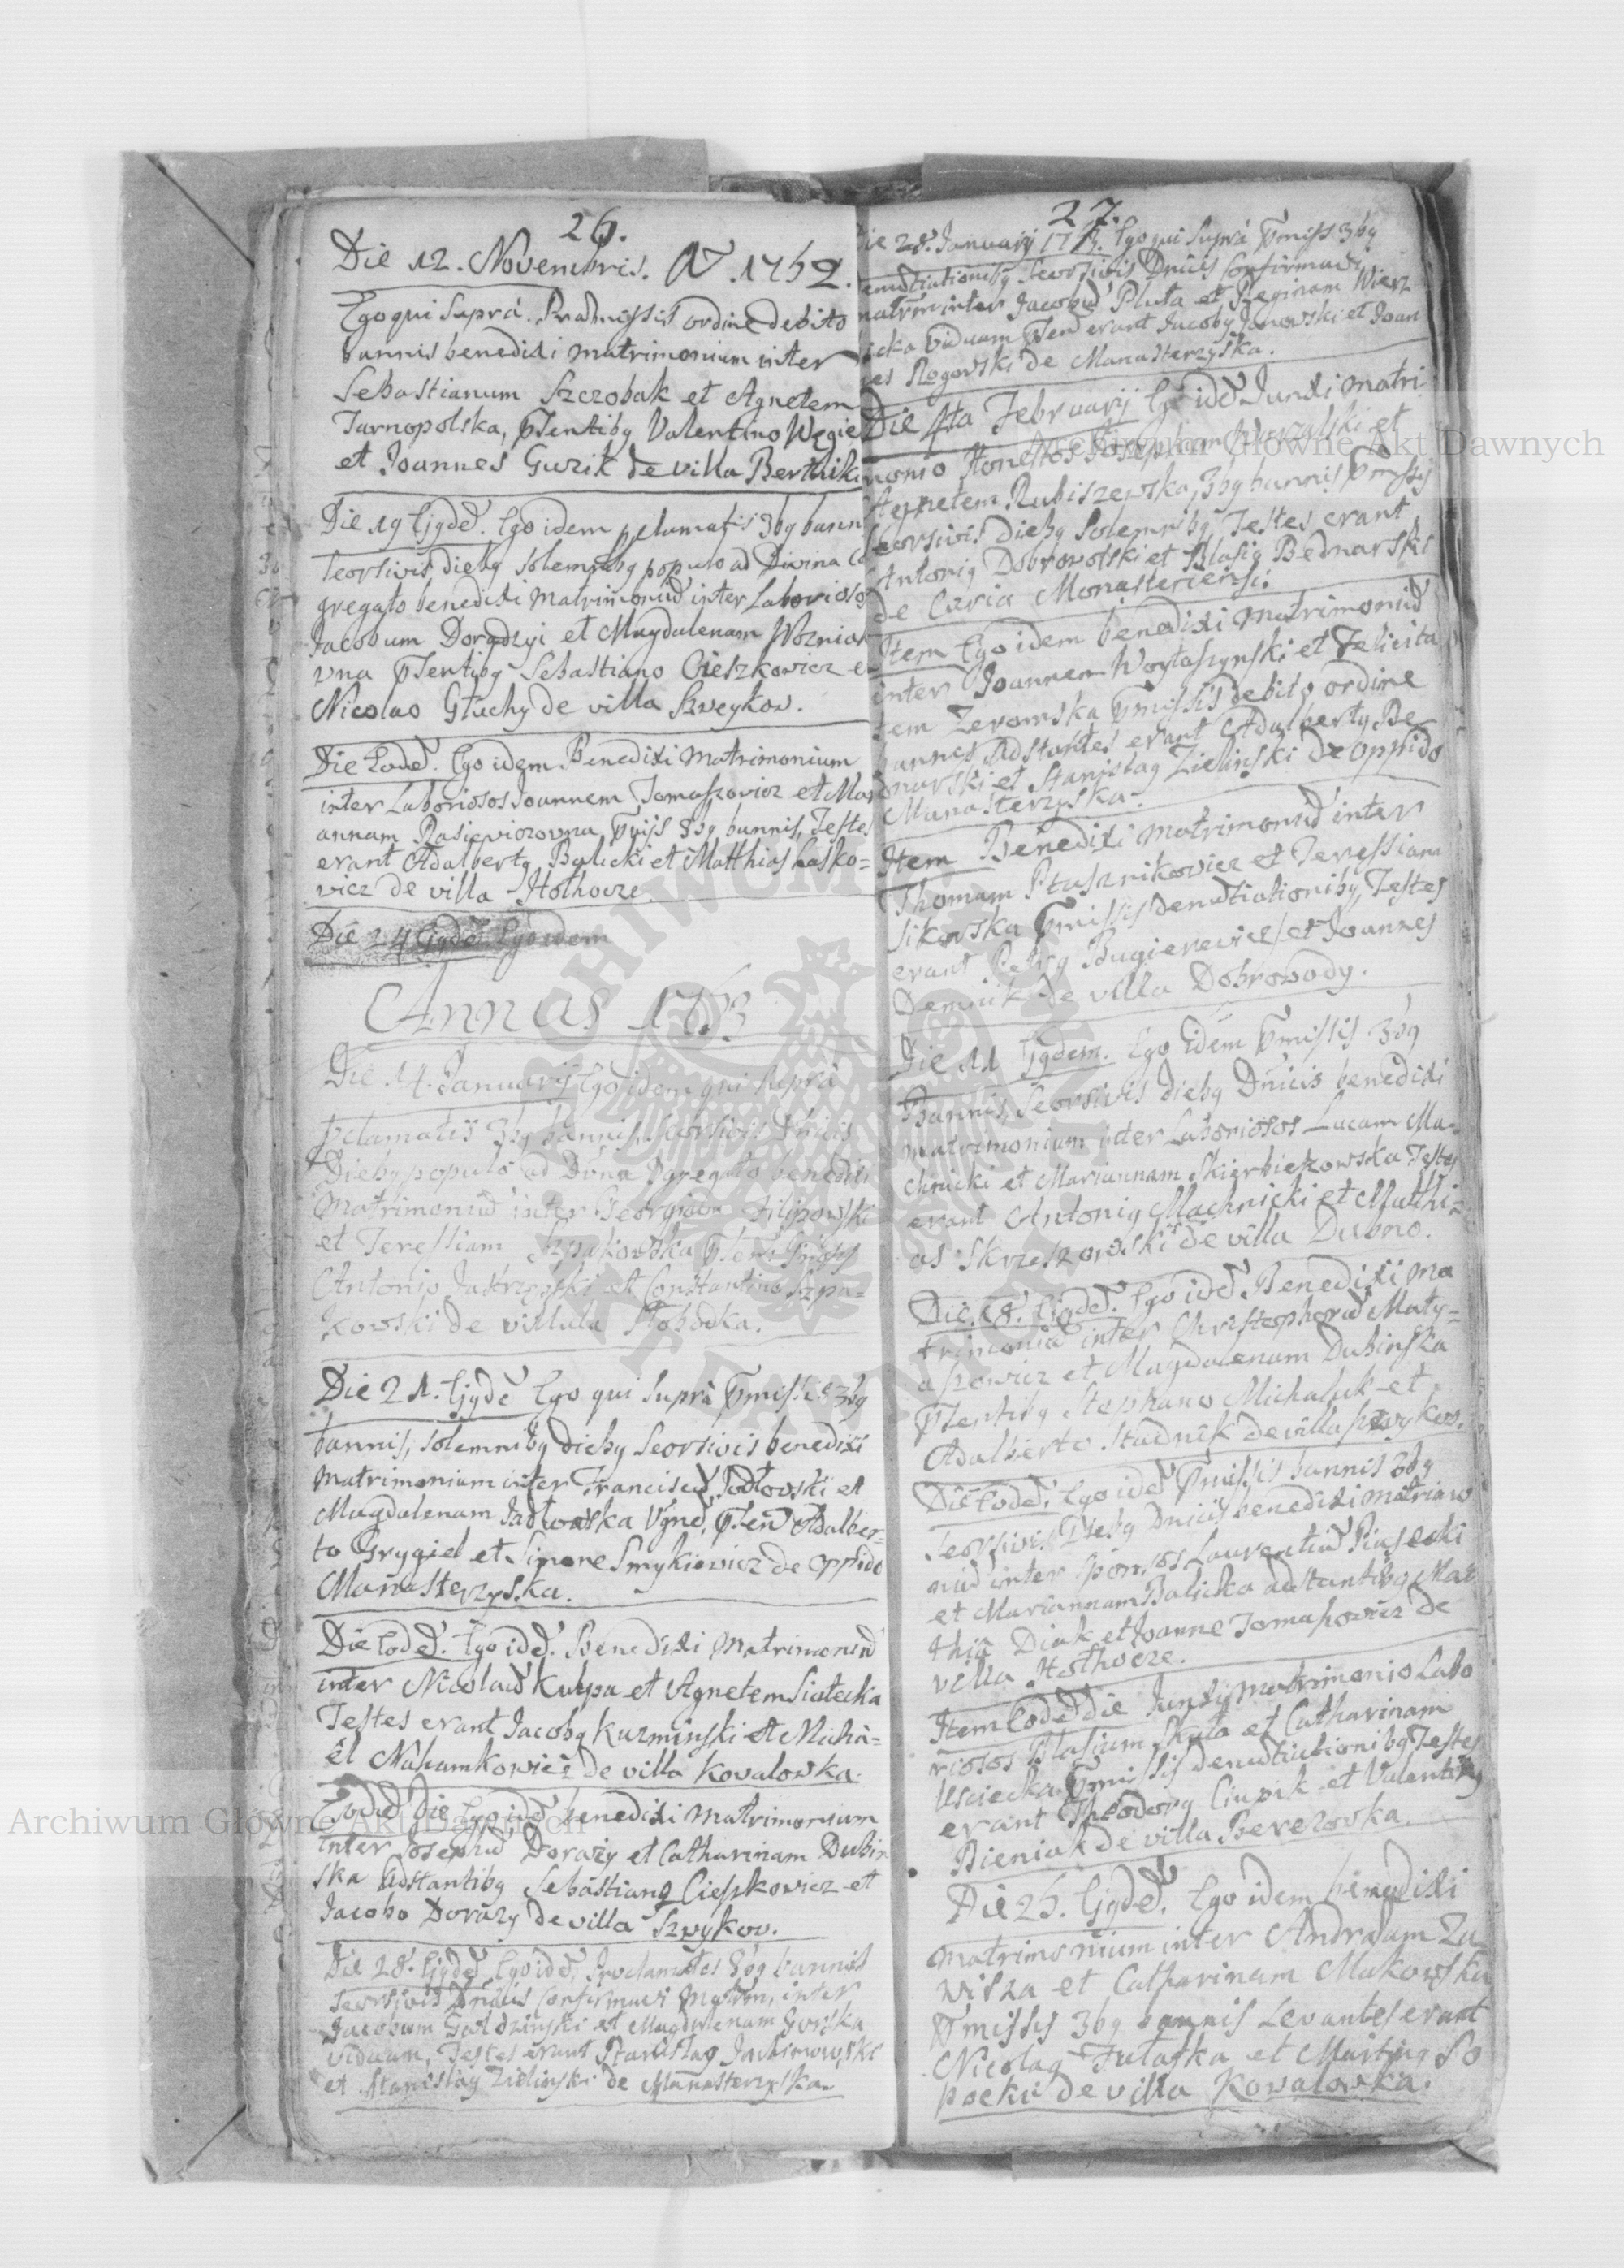 26.
Die 12. Novembris. A 1752.
Ego qui Supra. Praemissis ordine debito
bannis benedixi matrimonium inter
Sebastianum Szczobak et Agnetem
Tarnopolska, Pstentibq Valentino Węgie
et Joannes Guzik de villa Berthiki
Die 19 Ejgdē. Ego idem pclamatis 3bq bann
seorsivis diebq solemnibq populo ad Divina Co
gregato benedixi matrimoniū inter Laborioso
Jacobum Doradzyi et Magdalenam Wozniak
vna Pstentibq Sebastiano Cieszkowicz et
Nicolao Głuchy de villa Szweykow.
Die Eodē. Ego idem Benedixi matrimonium
inter Laboriosos Joannem Tomaszowicz et Mar
annam Rasiewiczowna, Pmiss 3bq bannis, Testes
erant Adalbertq Balicki et Matthias Lasko=
wicz de villa Hothocze.
Die 24 Ejgdē Ego idem
Annus 1753
Die 14. Januarij Ego idem qui Supra
pclamatis 3bq bannis, seorsivis Dnicis
Diebq populo ad Dvina Ɔgregato benedixi
Matrimoniū inter Georgium Filipowski
et Teressiam Szpakowska
Antonio Jastrzęsski et Constantino Szpa=
kowski de villula Słobodka.
Die 21. Ejgdē Ego qui Supra Pmissis 3bq
bannis, solemnibq diebq seorsivis benedixi
matrimonium inter Franciscū Jodłowski et
Magdalenam Jadłowska Vgnē, Pstē Adalber=
to Grygiel et Simone Smykiewicz de oppido
Manasterzyska.
Die Eodē. Ego idē. Benedixi Matrimoniū
inter Nicolaū Kulpa et Agnetem Siatecka
Testes erant Jacobq Kuzminski et Micha=
el Nahamkowicz de villa Kovalowka.
Eodē Die Ego idē benedixi matrimonium
inter Josephū Dorazy et Catharinam Dubin
ska Adstantibq Sebastiano Cieszkowicz et
Jacobo Dorazy de villa Szwykov.
Die 28. Ejgdē, Ego idē, Proclamatis 3bq bannis
seorsivis Dnicis Confirmavi Matrim, inter
Jacobum Goldzinski et Magdalenam Gorska
Viduam, Testes erant Stanislaq Jachimowski
et Stanislaq Zielinski de Manasterzyska.
27.
Die 28. Januarij 1753. Ego qui Supra Pmiss 3bq
enūtiationibq Seorsivis Dnicis Confirmavi
matrim inter Jacobū Pluta et Reginam Wierz
icka Viduam Pstē erant Jacobq Janowski et Joan
es Rogowski de Manasterzyska.
Die 4ta Februarij Ego idē Junxi matri
monio Honestos Josephum et
Agnetem Rubiszewska, 3bq bannis Pmissis
seorsivis diebq Solemnibq, Testes erant
Antoniq Dobrowolski et Blasiq Bednarski
de Curia Monasteriensi.
Item Ego idem benedixi matrimoniū
inter Joannem Woytaszynski et Felicita
tem Zeromska Pmissis debito ordine
bannis, Adstantes erant Adalbertq Be
dnarski et Stanislaq Zielinski de oppido
Manasterzyska.
Item Benedixi matrimoniū inter
Thomam Ptasznikowicz et Teressiam
Sikorska Pmissis denūtiationibq, Testes
erant Petrq Bugierewicz et Joannes
Demnik de villa Dobrowody.
Die 11 Ejgdem. Ego idem Pmissis 3bq
Bannis, Seorsivis diebq Dnicis benedixi
matrimonium inter Laboriosos Lucam Ma=
chnicki et Mariannam Skierbiezowska Testes
erant Antoniq Machnicki et Matthi=
as Skrzeszowski de villa Dubno.
Die 18. Ejgdē. Ego idē Benedixi ma
trimoniū inter Christophorū Maty=
aszowicz et Magdalenam Dubinska
Pstentibq Stephano Michaluk et
Adalberto Stadnik de villa Szwykow.
Die Eodē, Ego idē Pmissis bannis 3bq
Seorsivis Diebq Dnicis benedixi matrimo
niū inter sponsos Laurentiū Piasecki
et Mariannam Balicka adstantibq Mat
thia Diak et Joanne Tomaszowicz de
villa Hothocze.
Item Eodē die Junxi matrimonio Labo
riosos Blasium Skuta et Catharinam
Usciecka Pmissis denūtiationibq Testes
erant Theodorq Ciupik et Valentinq
Bieniak de villa Berezovka.
Die 25. Ejgdē. Ego idem benedixi
matrimonium inter Andream Za
wisza et Catharinam Makowska
Pmissis 3bq bannis Levantes erant
Nicolaq Fulatka et Martinq So
pocki de villa Kovalowka.
Archiwum Główne Akt Dawnych
Archiwum Główne Akt Dawnych